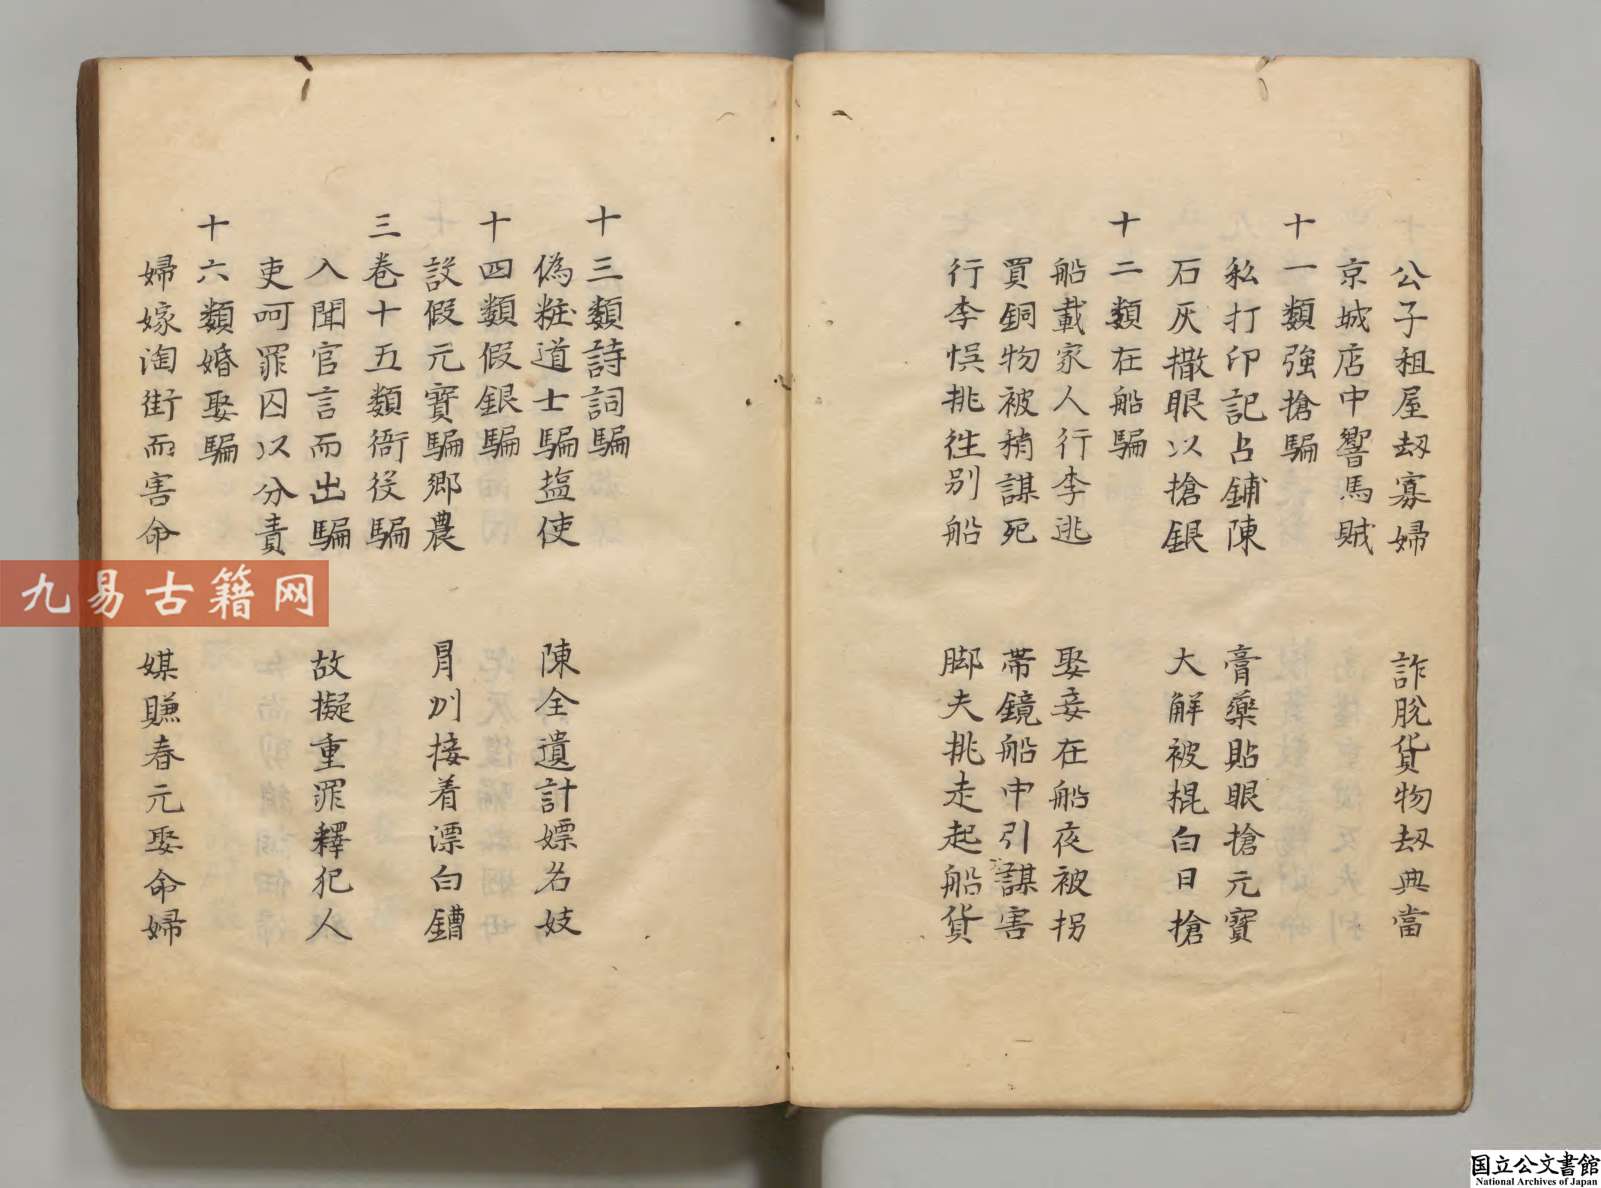 公子租屋刼寡婦　詐脫貨物刼典當
京城店中響馬賊
十一類強搶騙
私打印記占鋪陳　膏藥貼眼搶元寶
石灰撒眼以搶銀　大解被棍白日搶
十二類在船騙
船載家人行李逃　娶妾在船夜被拐
買銅物被稍謀死　帶鏡船中引謀害
行李悞挑徃別船　脚夫挑走起船貨
十三類詩詞騙
偽粧道士騙塩使　陳全遺計嫖名妓
十四類假銀騙
設假元寶騙鄉農　冐州接着漂白鏪
三卷十五類衙役騙
入聞官言而出騙　故擬重罪釋犯人
吏呵罪囚以分責
十六類婚娶騙
婦嫁淘街而害命　媒賺春元娶命婦
九易古籍网
国立公文書館
National Archives of Japan